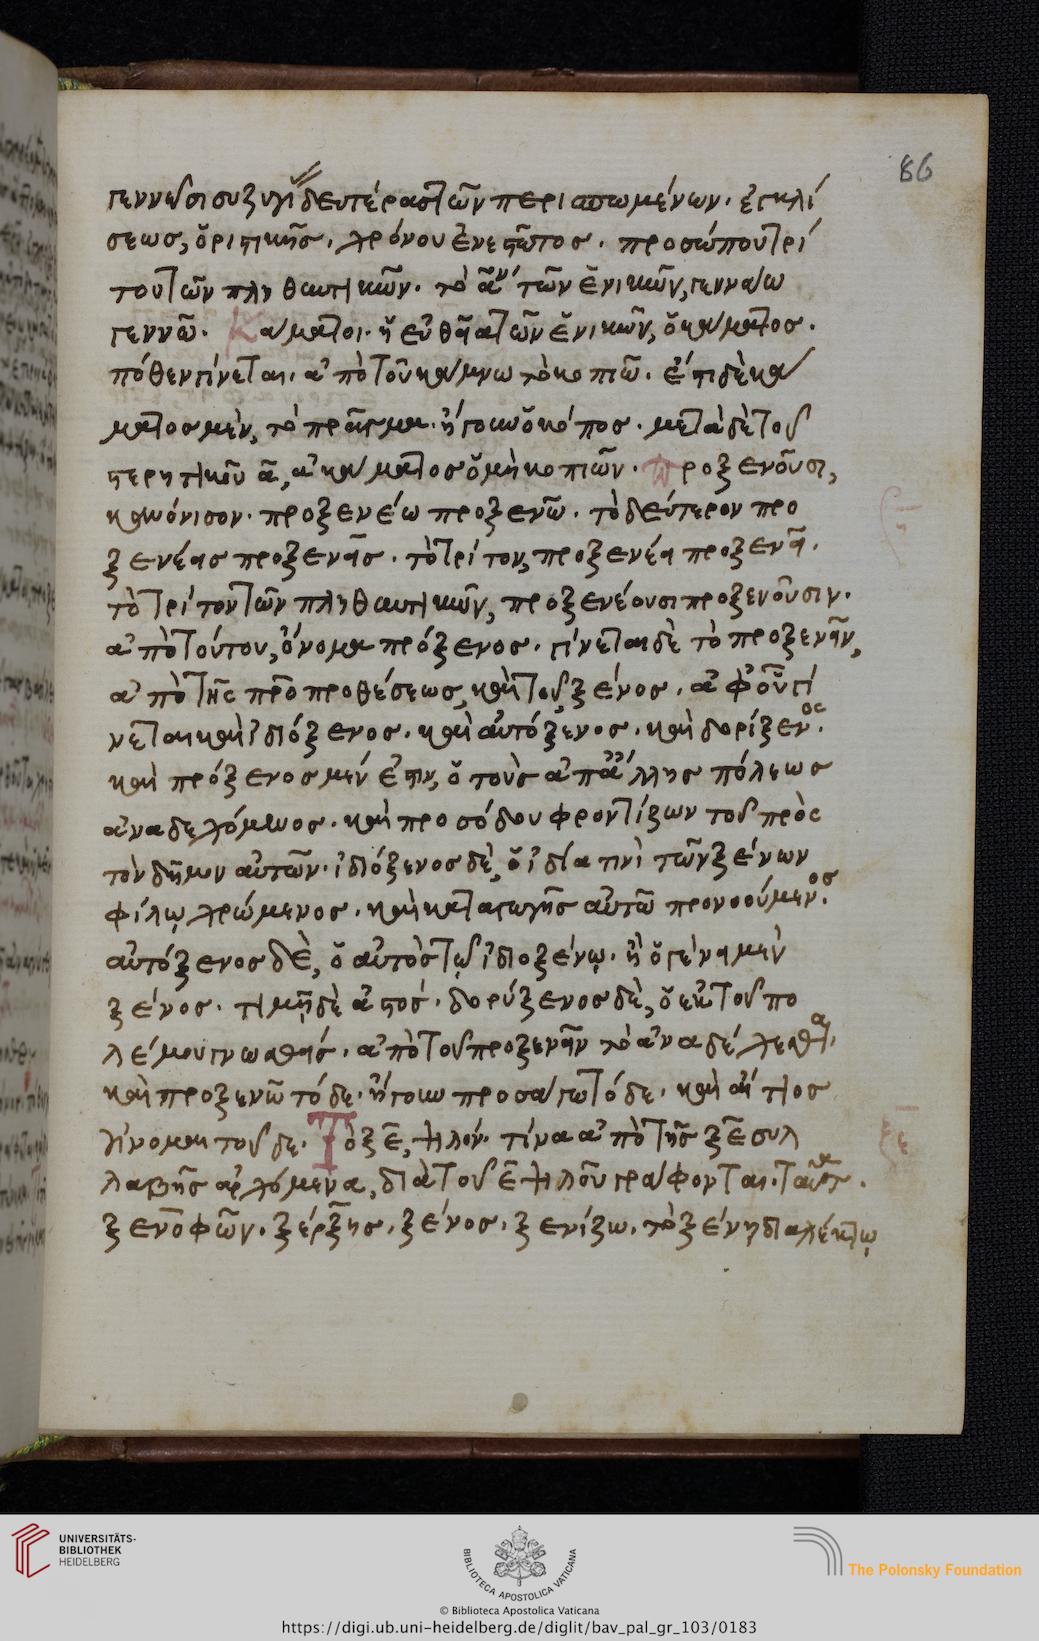 86
γεννῶσι συζυγί δευτέρας τῶν περισπωμένων. ἐγκλί
σεως, ὁριστικῆς. χρόνου ἐνεστῶτος. προσώπου τρί
του τῶν πληθυντικῶν. τὸ αον τῶν ἑνικῶν, γεννάω
γεννῶ. Κάματοι. ἡ εὐθεῖα τῶν ἑνικῶν, ὁ κάματος.
πόθεν γίνεται. ἀπὸ τοῦ κάμνω τὸ κοπιῶ. ἔστι δὲ κά
ματος μὲν, τὸ πρᾶγμα. ἤγουν ὁ κόπος. μετὰ δὲ τοῦ
στερητικοῦ α, ἀκάματος ὁ μὴ κοπιῶν. Προξενοῦσι,
κανόνισον. προξενέω προξενῶ. τὸ δεύτερον προ
ξενέεις προξενεῖς. τὸ τρίτον, προξενέει προξενεῖ.
τὸ τρίτον τῶν πληθυντικῶν, προξενέουσι προξενοῦσιν.
ἀπὸ τούτου, ὄνομα πρόξενος. γίνεται δὲ τὸ προξενεῖν,
ἀπὸ τῆς προ προθέσεως, καὶ τοῦ ξένος. ἀφ οὗ γί
νεται καὶ ἰδιόξενος. καὶ αὐτόξενος. καὶ δορίξενος.
καὶ πρόξενος μέν ἐστιν, ὁ τοὺς ἀπ ἄλλης πόλεως
ἀναδεχόμενος. καὶ προσόδου φροντίζων τοῦ πρὸς
τὸν δῆμον αὐτῶν. ἰδιόξενος δὲ, ὁ ἰδία τινὶ τῶν ξένων
φίλῳ χρώμενος. καὶ καταγωγῆς αὐτῶ προνοούμενος.
αὐτόξενος δὲ, ὁ αὐτὸς τῷ ἰδιοξένῳ. ἢ ὁ γένει μὲν
ξένος. τιμῇ δὲ ἀστός. δορύξενος δὲ, ὁ ἐκ τοῦ πο
λέμου γνωσθείς. ἀπὸ τοῦ προξενεῖν τὸ ἀναδέχεσθαι.
καὶ προξενῶ τόδε. ἤγουν προσάγω τόδε. καὶ αἴτιος
γίνομαι τοῦδε. Τὸ ξε, ψιλόν. τίνα ἀπὸ τῆς ξε συλ
λαβῆς ἀρχόμενα, διὰ τοῦ ε ψιλοῦ γράφονται. ταῦτα.
ξενοφῶν. ξέρξης. ξένος. ξενίζω. τὸ ξένῃ διαλέκτῳ
UNIVERSITÄTS-
BIBLIOTHEK
HEIDELBERG
BIBLIOTECA APOSTOLICA VATICANA
The Polonsky Foundation
© Biblioteca Apostolica Vaticana
https://digi.ub.uni-heidelberg.de/diglit/bav_pal_gr_103/0183